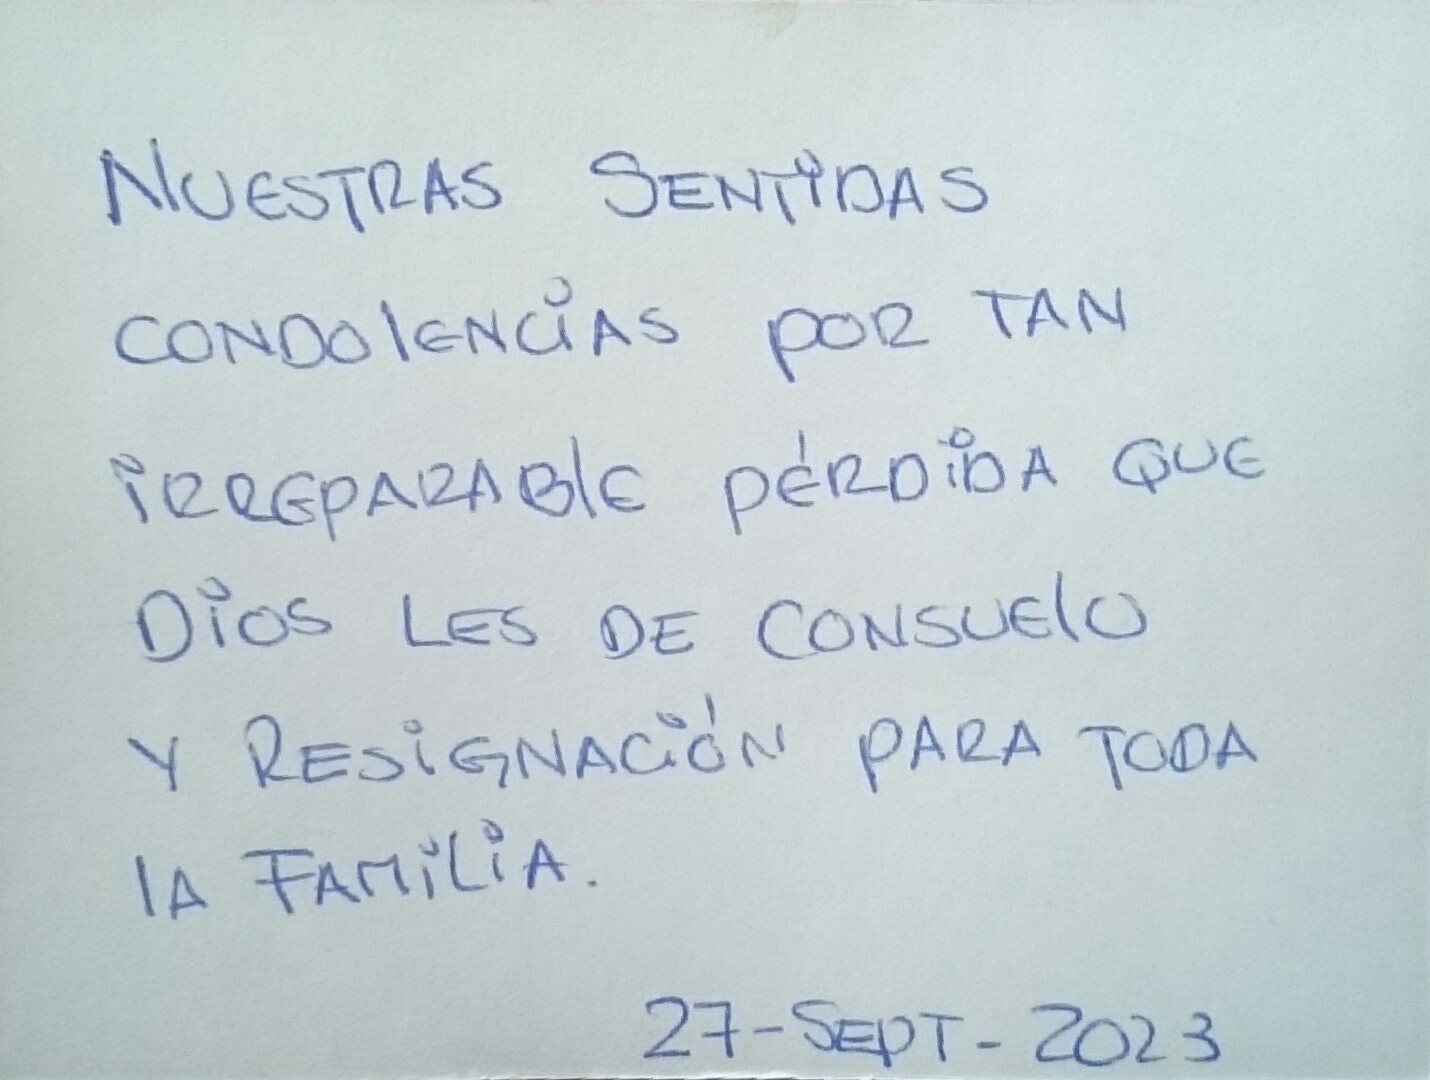 NUESTRAS SENTIDAS
CONDOLENCIAS POR TAN
IRREPARABLE PÉRDIDA QUE
DIOS LES DE CONSUELO
Y RESIGNACIÓN PARA TODA
LA FAMILIA.
27-SEPT-2023